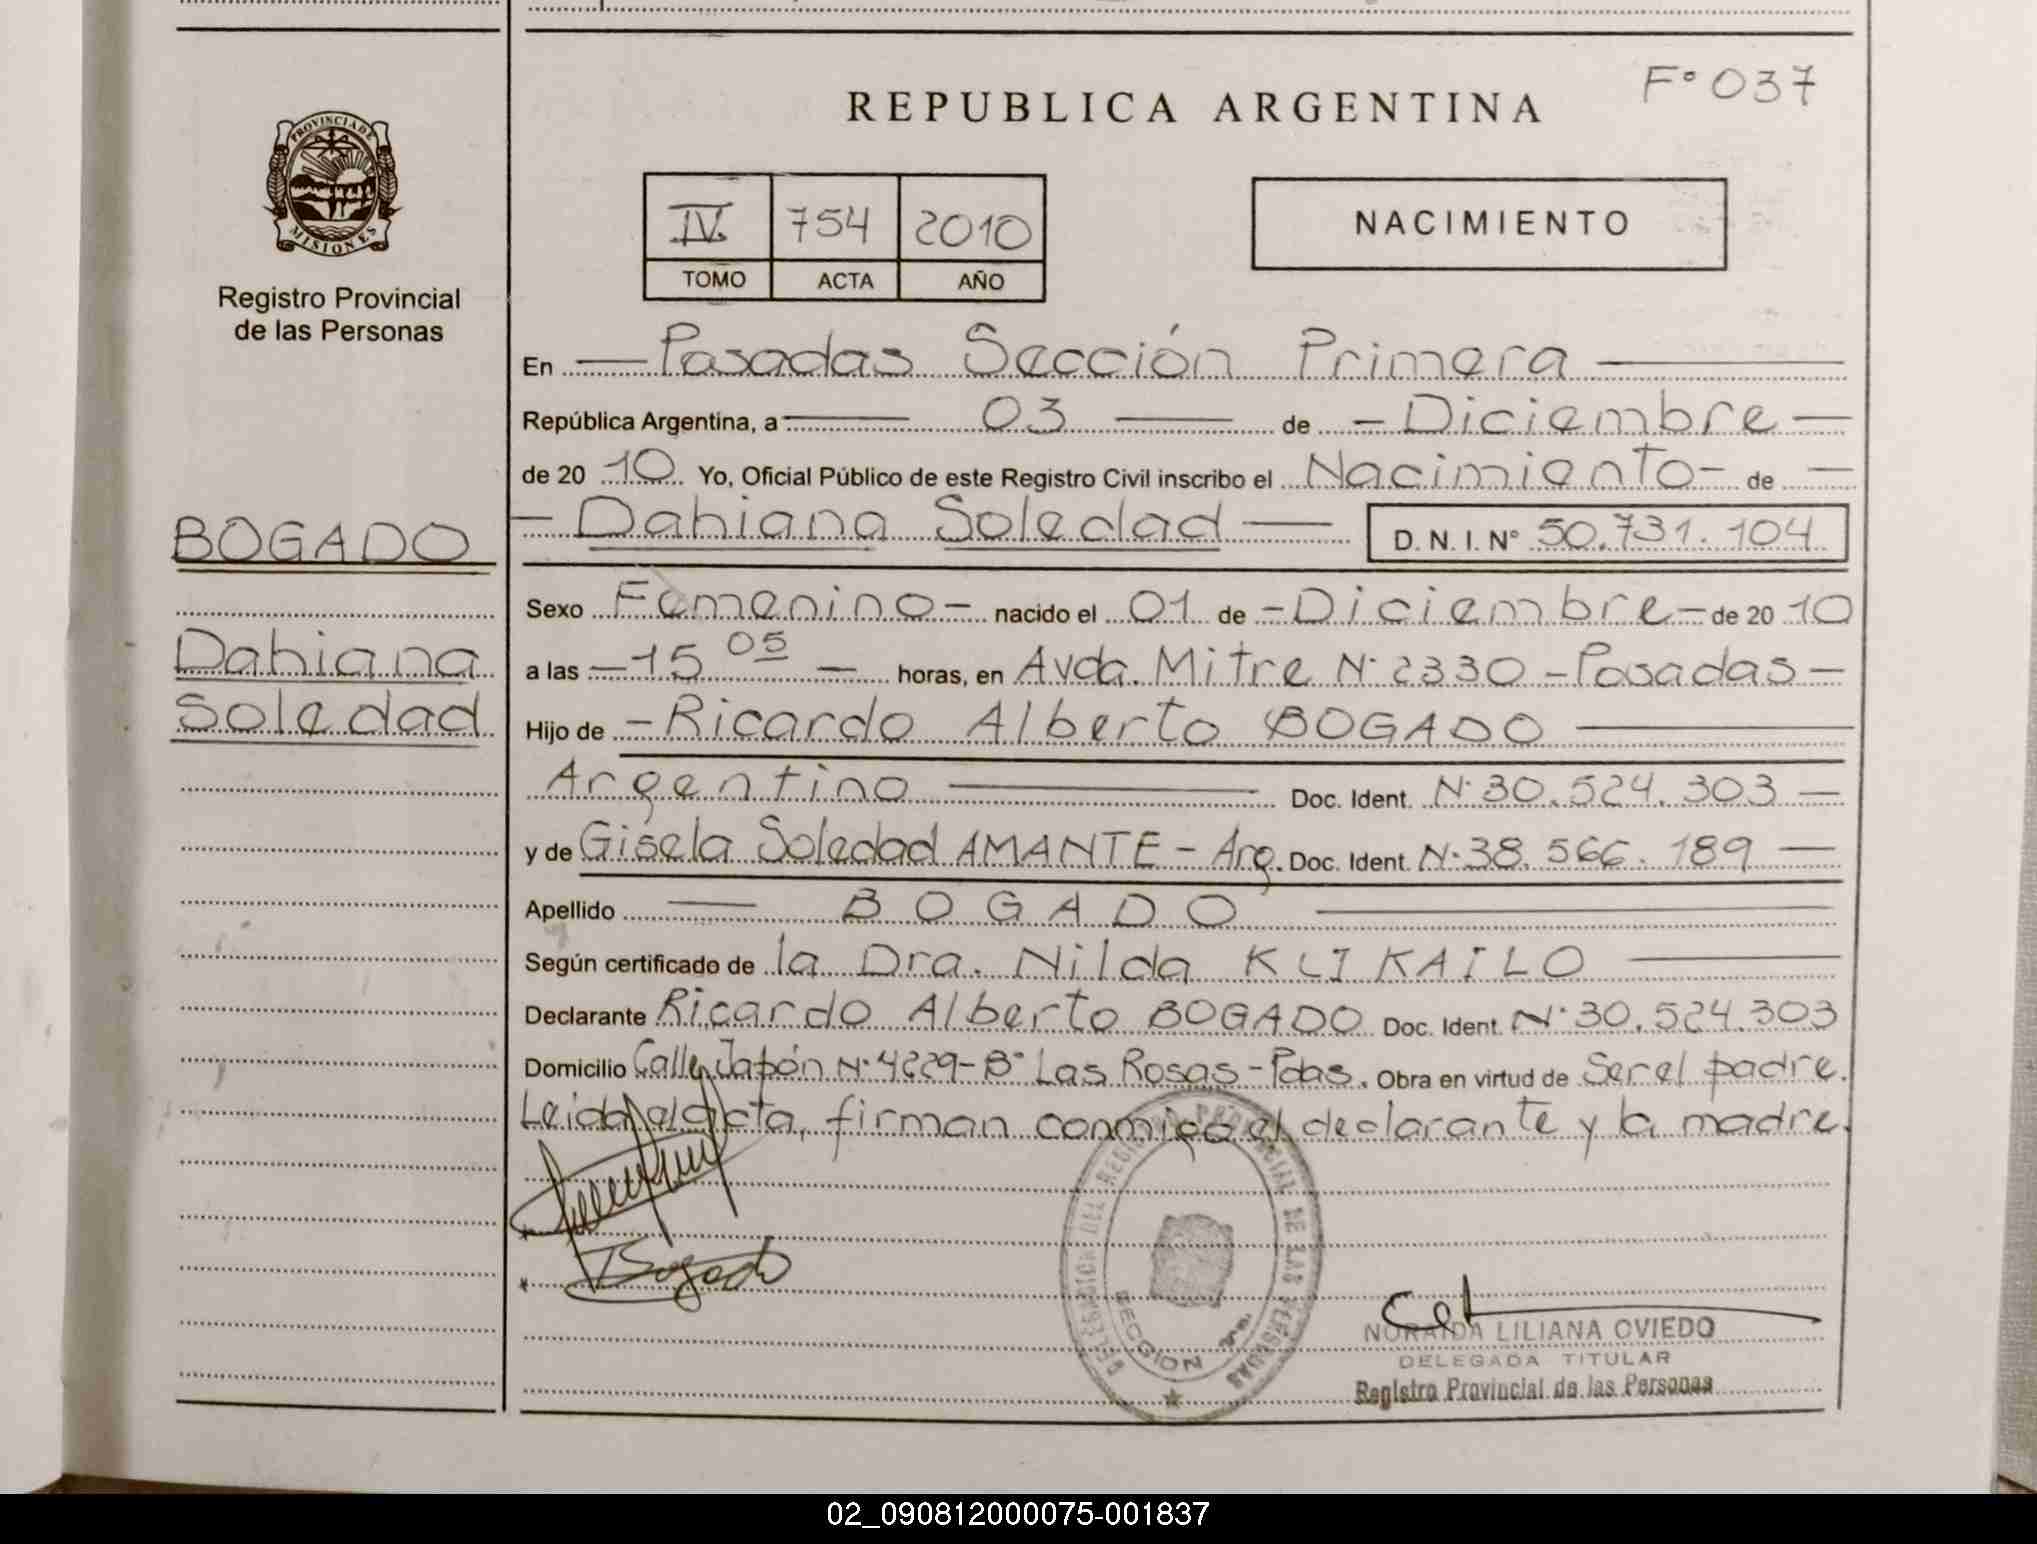 F° 037
REPUBLICA ARGENTINA
PROVINCIA DE
MISIONES
Registro Provincial
de las Personas
IV. 754 2010
TOMO ACTA AÑO
NACIMIENTO
En Pasadas Sección Primera
República Argentina, a 03 de Diciembre
de 20 10 Yo, Oficial Público de este Registro Civil inscribo el Nacimiento de
BOGADO
Dahiana Soledad D. N. I. N° 50.731.104
Sexo Femenino nacido el 01 de Diciembre de 20 10
Dahiana
Soledad
a las 15 05 horas, en Avda. Mitre N° 2330 - Posadas
Hijo de Ricardo Alberto BOGADO
Argentino Doc. Ident. N° 30.524.303
y de Gisela Soledad AMANTE - Arg. Doc. Ident. N° 38.566.189
Apellido BOGADO
Según certificado de la Dra. Nilda KLIKAILO
Declarante Ricardo Alberto BOGADO Doc. Ident. N° 30.524.303
Domicilio Calle Japón N° 4229 - B° Las Rosas - Pdas. Obra en virtud de Ser el padre.
Leida el acta, firman conmigo el declarante y la madre.
Bogado
DELEGACION DEL REGISTRO PROVINCIAL DE LAS PERSONAS
SECCION
NORAIDA LILIANA OVIEDO
DELEGADA TITULAR
Registro Provincial de las Personas
02_090812000075-001837